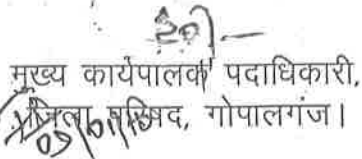 ह०/—
मुख्य कार्यपालक पदाधिकारी,
जिला परिषद, गोपालगंज।